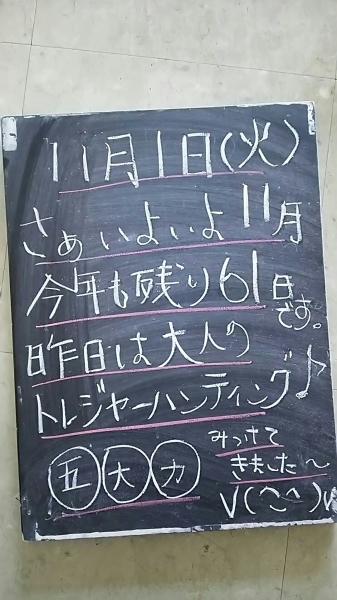 11月1日(火)
さぁいよいよ11月
今年も残り61日です。
昨日は大人の
トレジャーハンティング♪
五大力
みつけて
きました〜
V(^-^)v